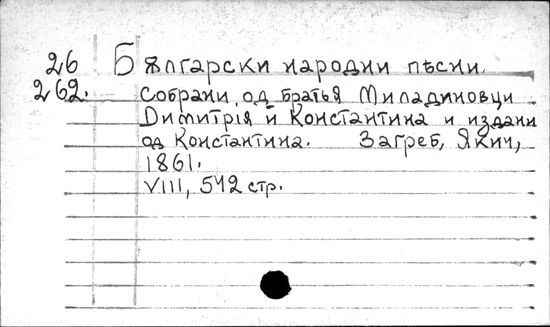 26 Бѫлгарски народни пѣсни.
262. Собрани од братья Миладиновци
Димитрıя й Константина и издани
од Константина. Загреб, Якич,
1861.
VIII, 542 стр.